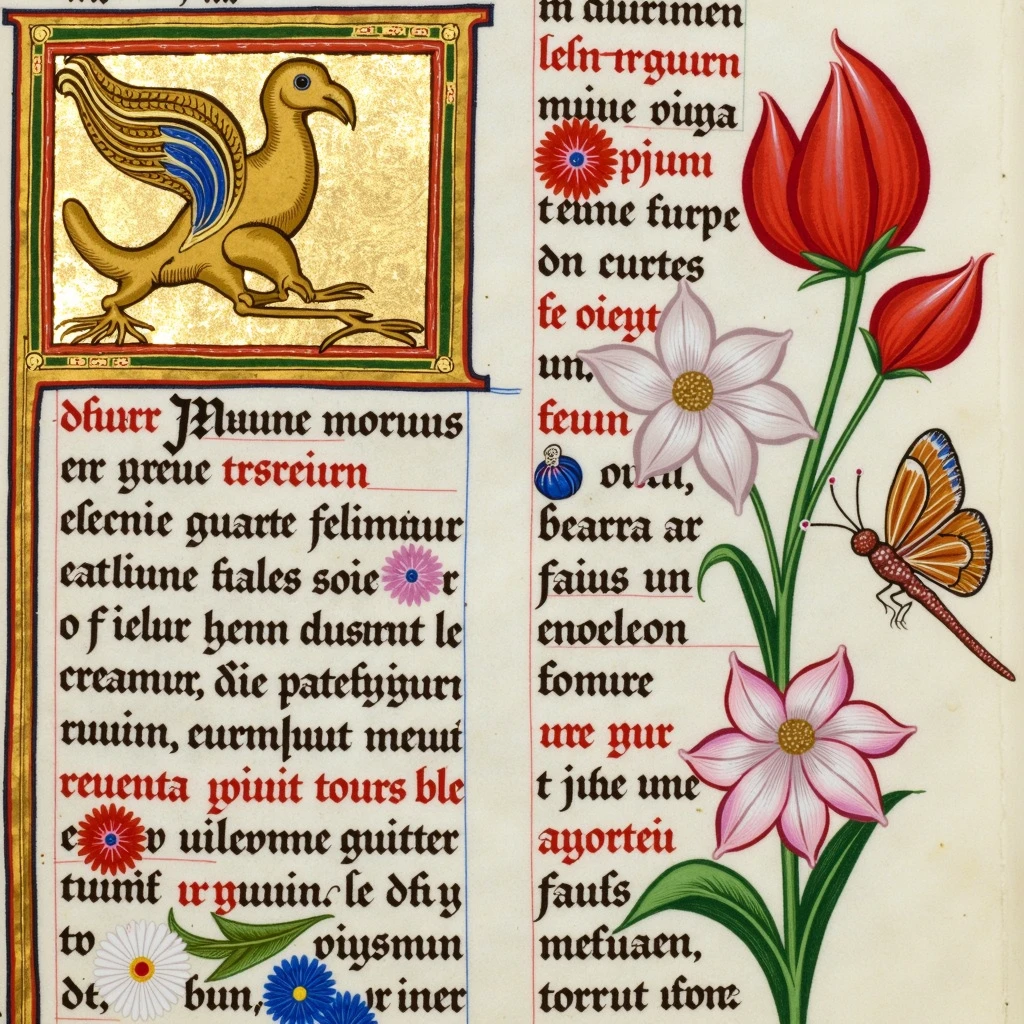 dfiurr Muune moruus
en greue trsreiurn
elecnie guarte felimnur
eatliune fiales soie r
o f ielur henn dusmnt le
creamur, die patefyiguri
ruuiin, eurmluut meuit
reuenta yiuit tours ble
e v uilevmme guitter
tuinif ur guuin le dfiy
to viysmun
dt, bun, r iner
m auurimen
leln-trguurn
muiue viuga
pjuni
teune furpe
dn curtes
fe oieyt
un.
feuin
bearra ar
faius un
enoeleon
fomure
ure gur
t jihe une
ayorteu
faufs
mefuaen,
torrut ifonz